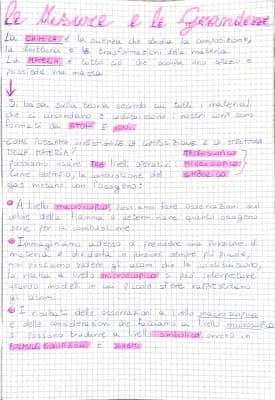 le Misure e le Grandezze
La CHIMICA è la scienza che studia la composizione,
la struttura e le trasformazioni della materia.
La MATERIA è tutto ciò che occupa uno spazio e
possiede una massa.
Si basa sulla teoria secondo cui tutti i materiali
che ci circondano e costituiscono i nostri corpi sono
formati da ATOMI E IONI.
COME POSSIAMO INVESTIGARE LA COMPOSIZIONE E LA STRUTTURA
DELLA MATERIA?
MACROSCOPICO
Possiamo usare TRE livelli operativi: MICROSCOPICO
Come esempio, la combustione del SIMBOLICO
gas metano con l'ossigeno:
A livello macroscopico, possiamo fare osservazioni sul
colore della fiamma e determinare quanto ossigeno
serve per la combustione.
Immaginiamo adesso di prendere una porzione di
materia e dividerla in porzioni sempre più piccole,
non possiamo vedere gli atomi che la costituiscono,
la realtà a livello microscopico si può interpretare
usando modelli in cui piccole sfere rappresentano
gli atomi.
I risultati delle osservazioni a livello macroscopico
e delle considerazioni che facciamo a livello microscopico
si possono tradurre a livello simbolico, ovvero in
FORMULE, EQUAZIONI E SCHEMI.